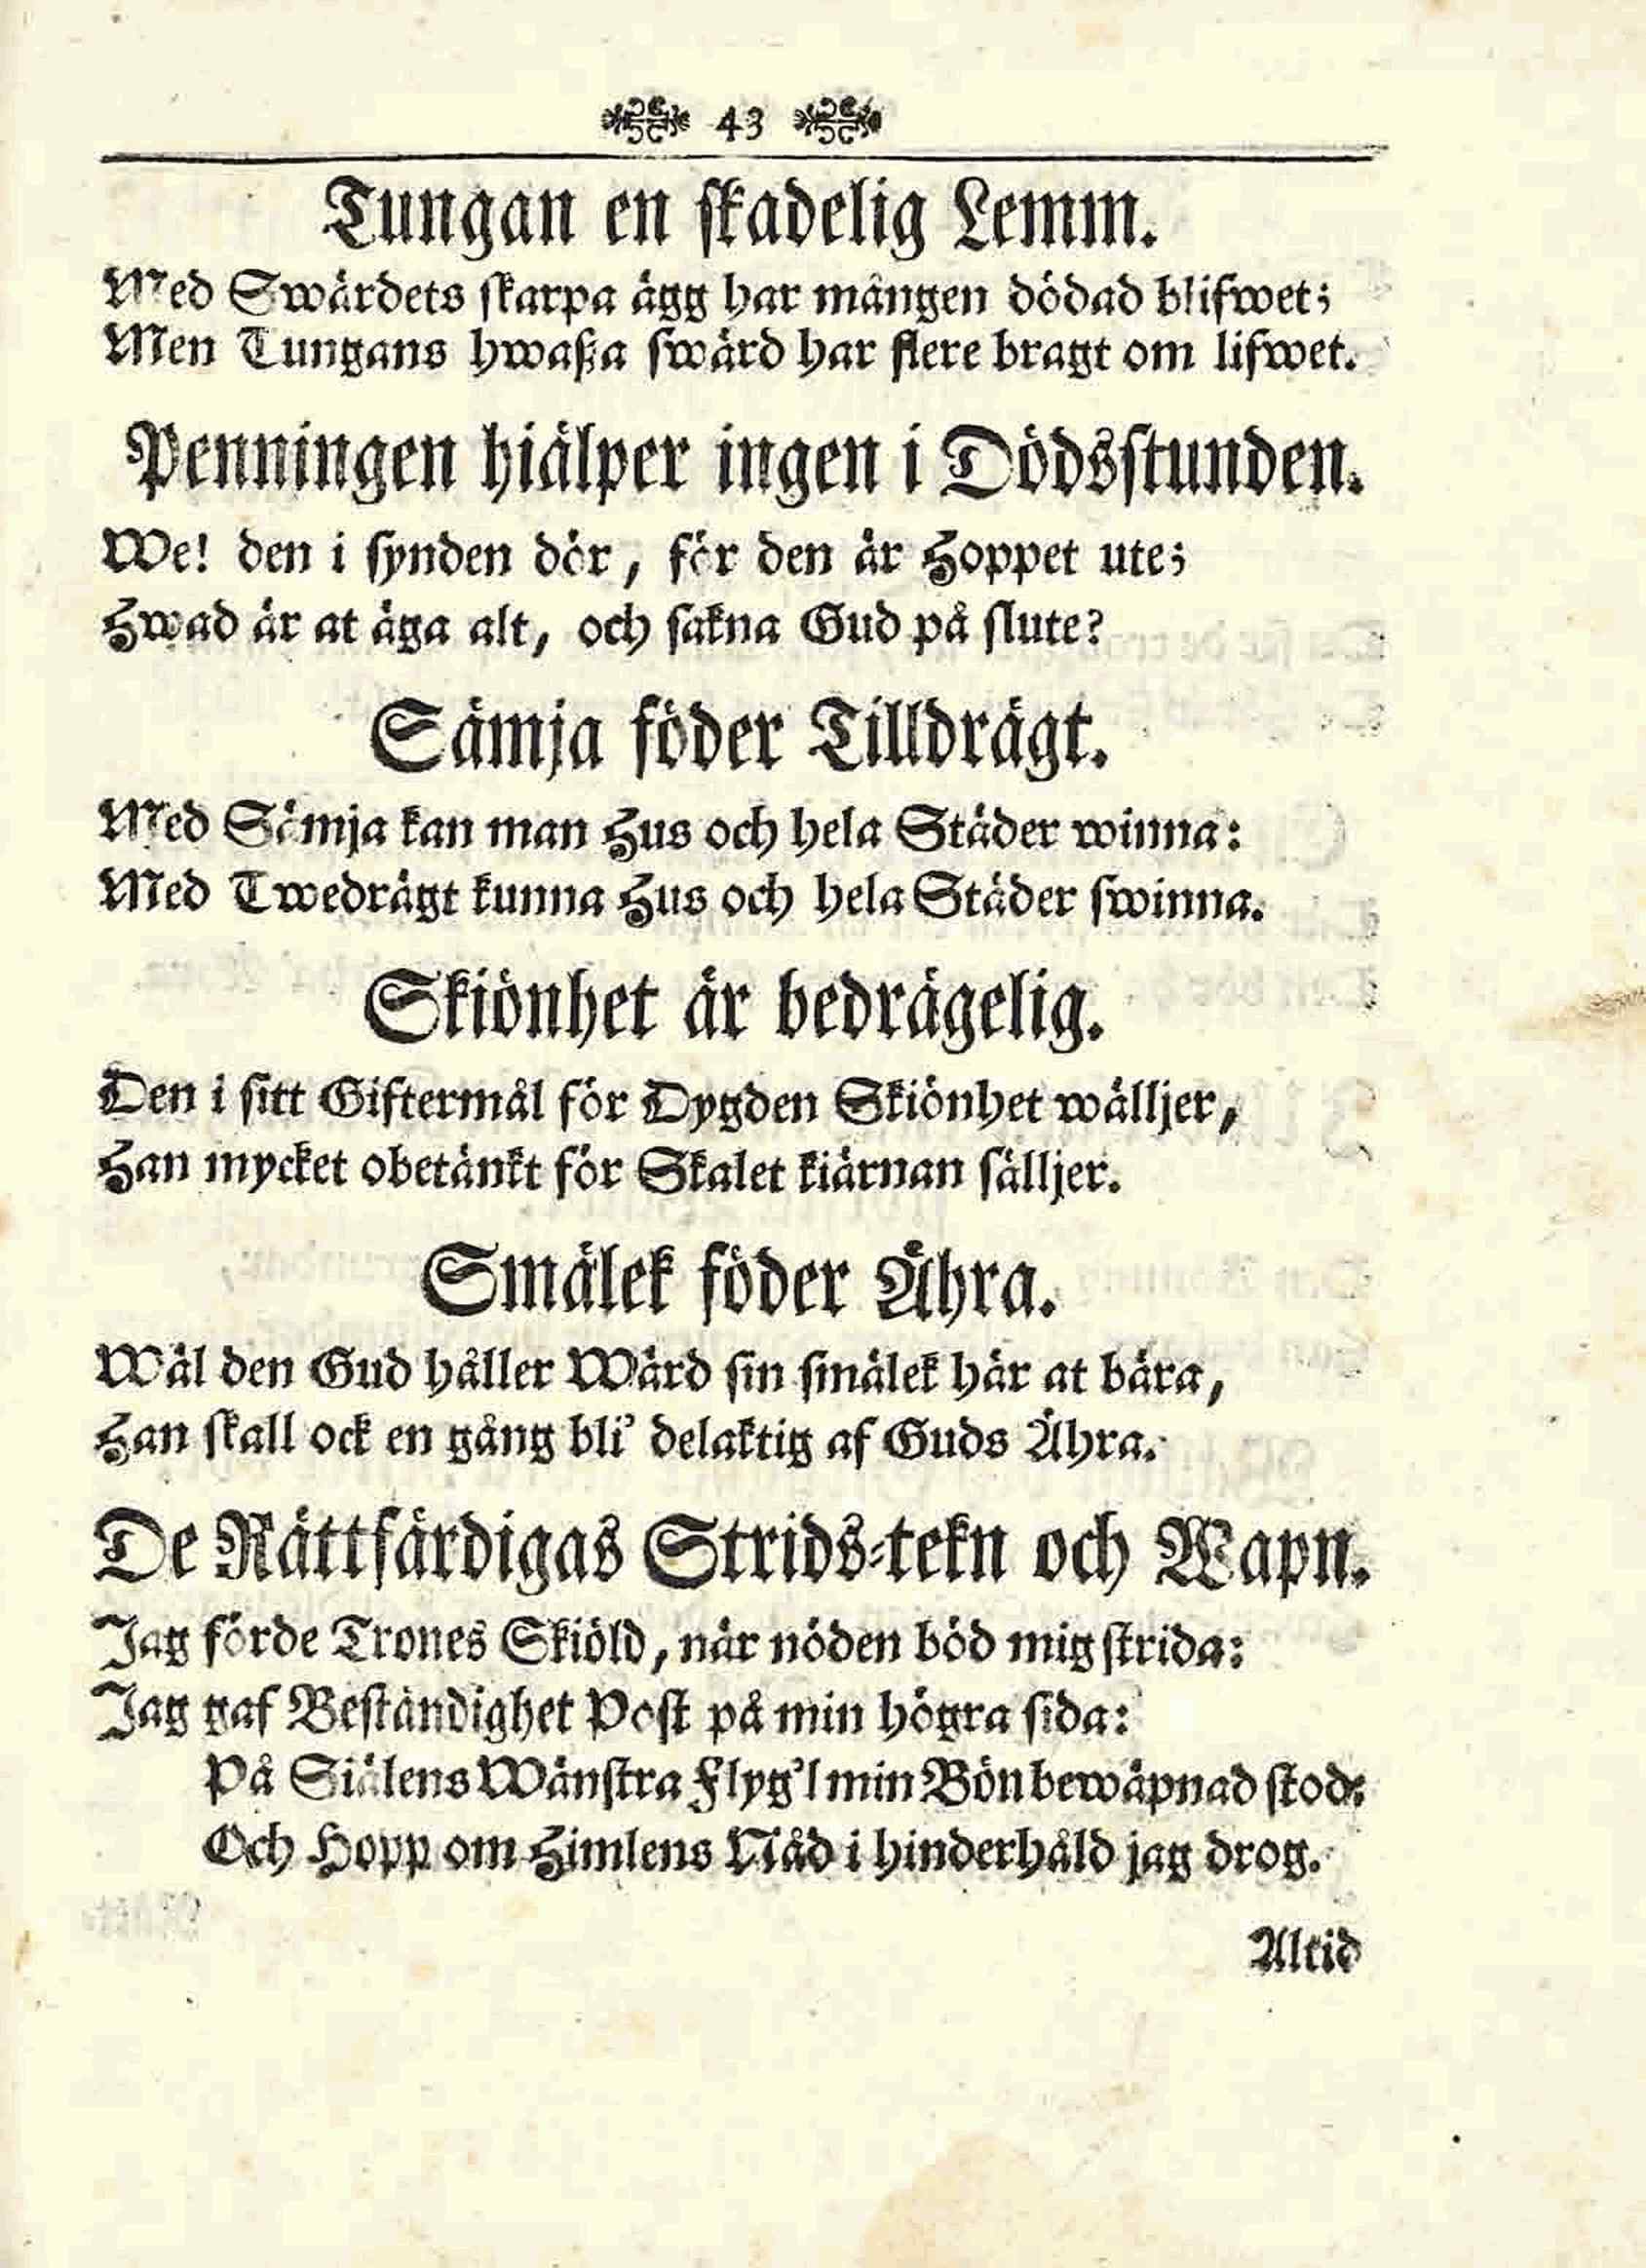 43
Tungan en skadelig Lemm.
Med Swärdets skarpa ägg har mången dödad blifwet;
Men Tungans hwaßa swärd har flere bragt om lifwet.
Penningen hiälper ingen i Dödsstunden.
We! den i synden dör, för den är Hoppet ute;
Hwad är at äga alt, och sakna Gud på slute?
Sämja föder Tilldrägt.
Med Sämja kan man Hus och hela Städer winna:
Med Twedrägt kunna Hus och hela Städer swinna.
Skiönhet är bedrägelig.
Den i sitt Giftermål för Dygden Skiönhet wälljer,
Han mycket obetänkt för Skalet kiärnan sälljer.
Smälek föder Ähra.
Wäl den Gud håller Wärd sin smälek här at bära,
Han skall ock en gång bli' delaktig af Guds Ähra.
De Rättfärdigas Strids-tekn och Wapn.
Jag förde Trones Skiöld, när nöden böd mig strida:
Jag gaf Beständighet Post på min högra sida:
På Siälens Wänstra Flyg'l min Bön bewäpnad stod:
Och Hopp om Himlens Nåd i hinderhåld jag drog.
Altid